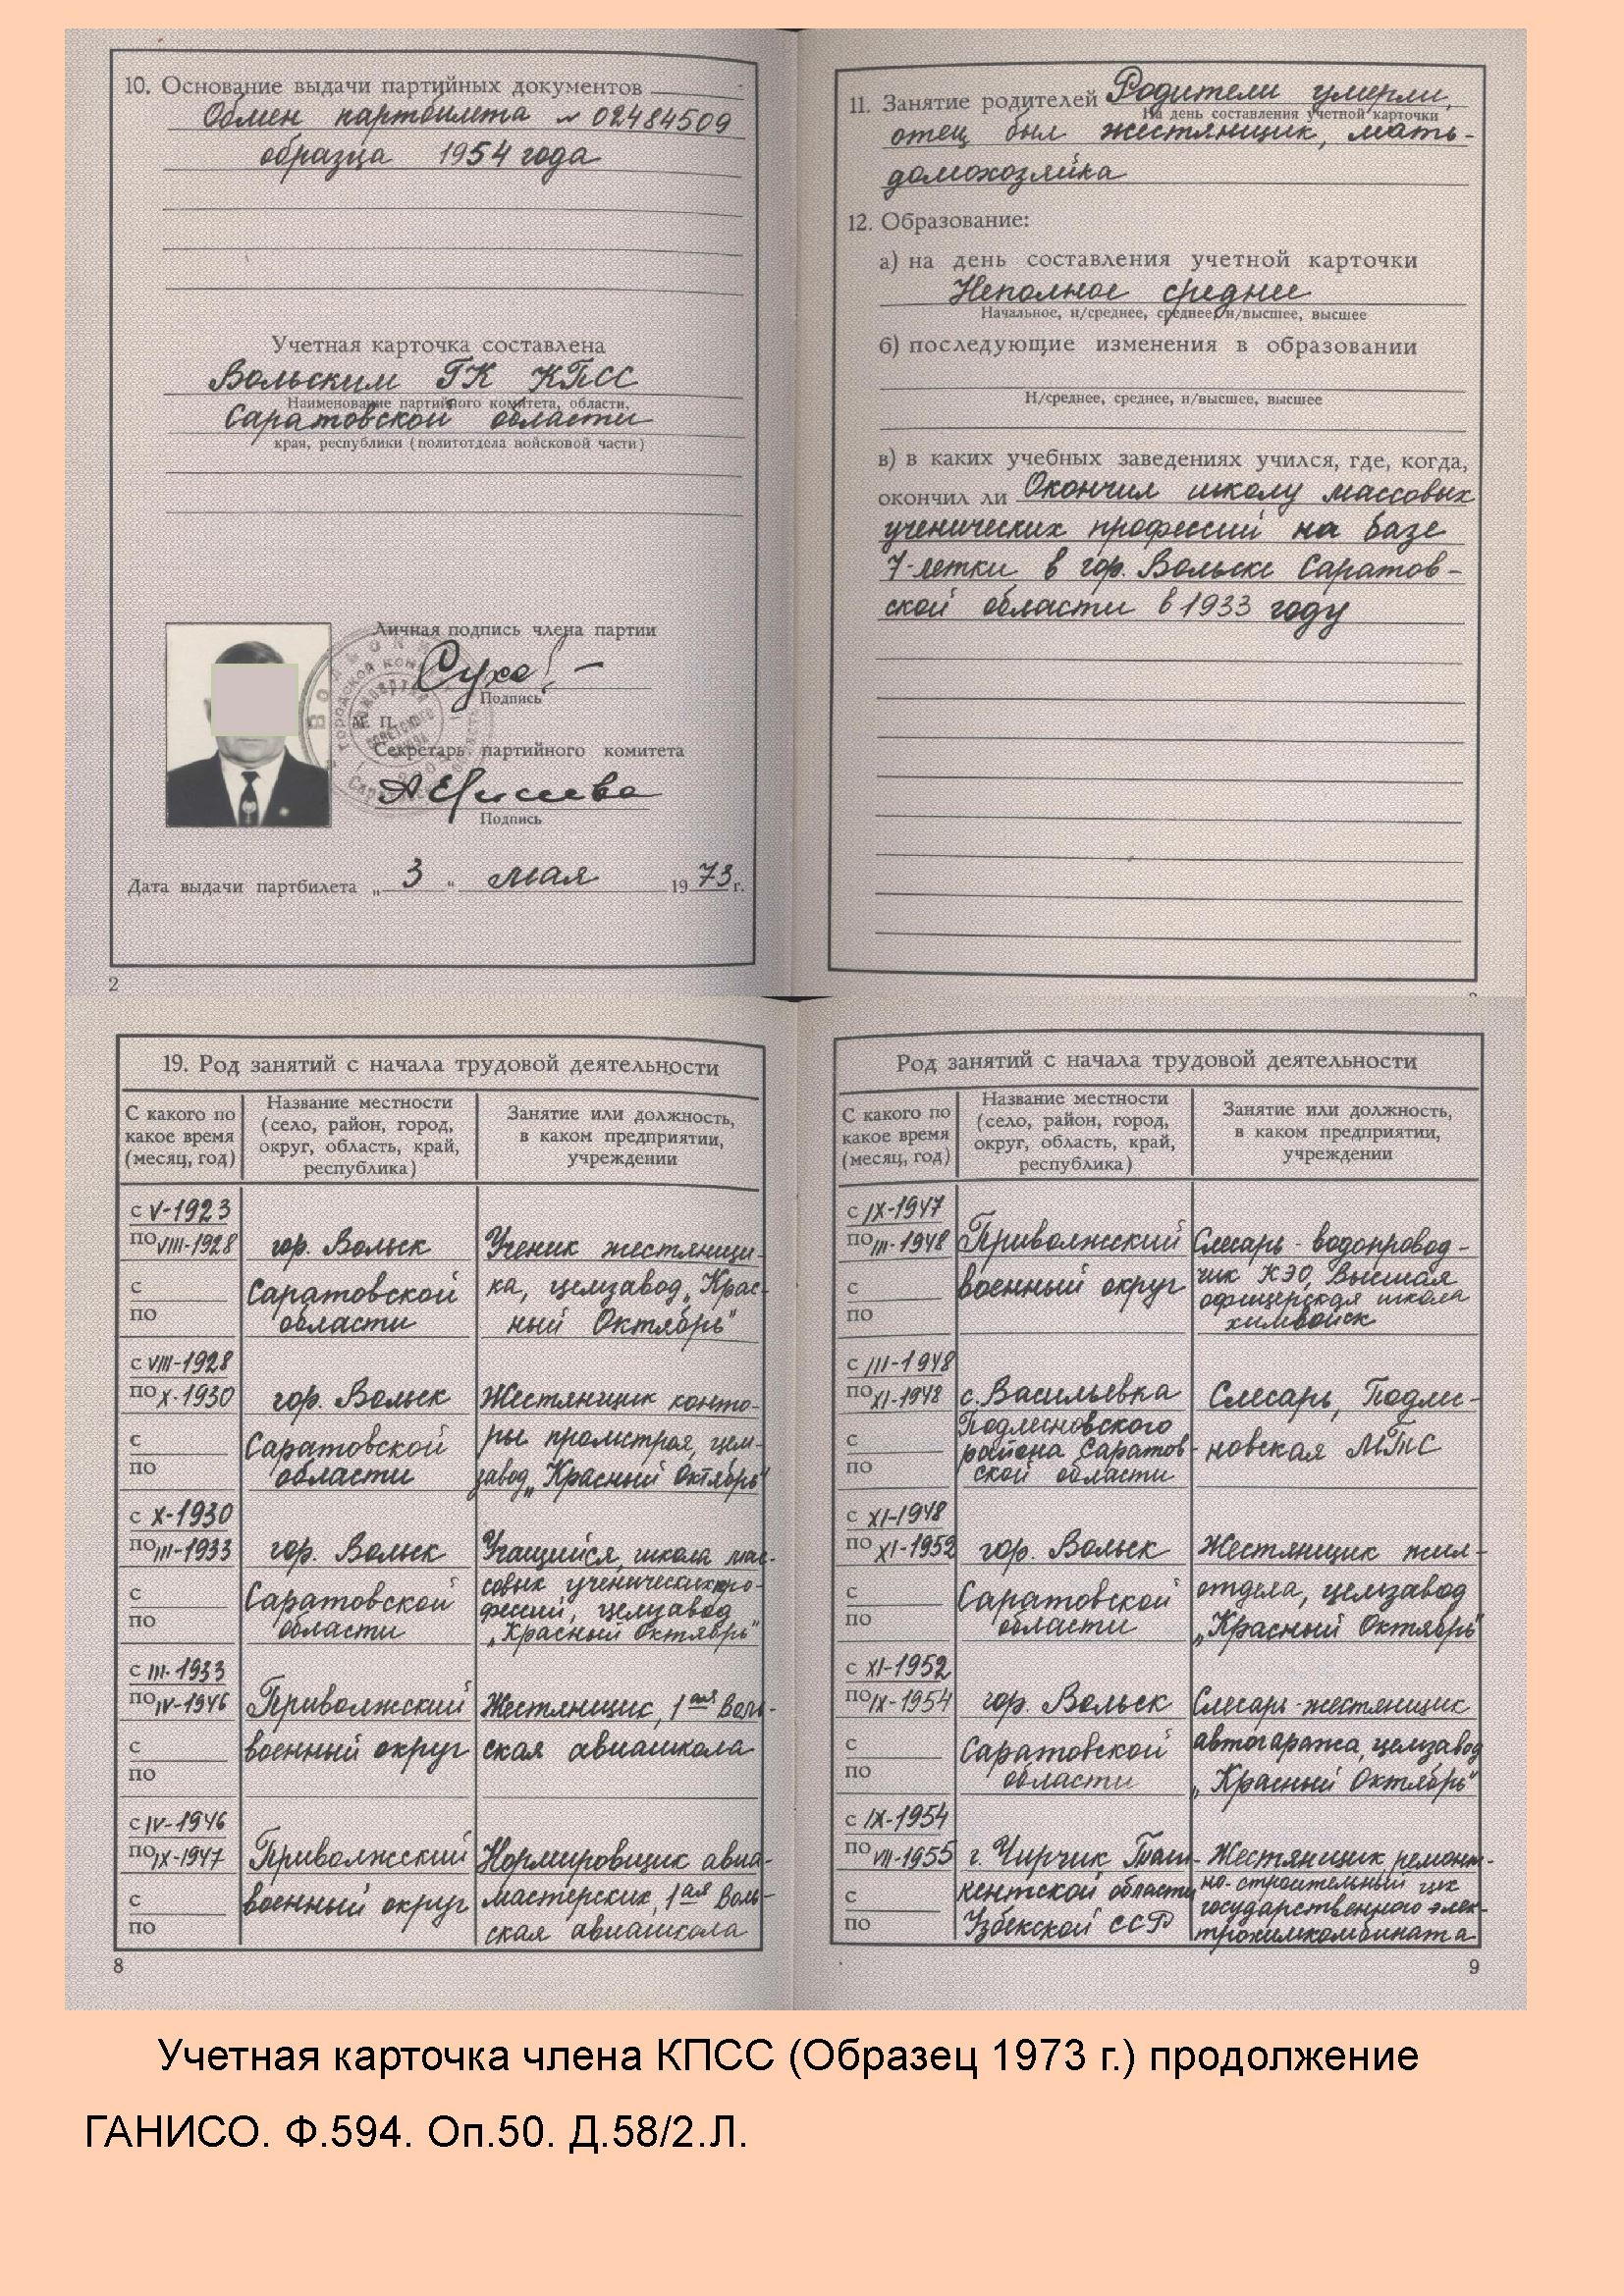 10. Основание выдачи партийных документов
Обмен партбилета № 02484509
образца 1954 года
Учетная карточка составлена
Вольским ГК КПСС
Наименование партийного комитета, области,
Саратовской области
края, республики (политотдела войсковой части)
Личная подпись члена партии
Подпись
М. П.
Секретарь партийного комитета
Подпись
Дата выдачи партбилета „ 3 " мая 1973 г.
2
11. Занятие родителей Родители умерли,
На день составления учетной карточки
отец был жестянщик, мать-
домохозяйка
12. Образование:
а) на день составления учетной карточки
Неполное среднее
Начальное, н/среднее, среднее, н/высшее, высшее
б) последующие изменения в образовании
Н/среднее, среднее, н/высшее, высшее
в) в каких учебных заведениях учился, где, когда,
окончил ли Окончил школу массовых
ученических профессий на базе
7-летки в гор. Вольске Саратов-
ской области в 1933 году
19. Род занятий с начала трудовой деятельности
С какого по
какое время
(месяц, год)
Название местности
(село, район, город,
округ, область, край,
республика)
Занятие или должность,
в каком предприятии,
учреждении
с V-1923
по VIII-1928
с
по
гор. Вольск
Саратовской
области
Ученик жестянщи-
ка, цемзавод „Крас-
ный Октябрь"
с VIII-1928
по X-1930
с
по
гор. Вольск
Саратовской
области
Жестянщик конто-
ры промстроя, цем-
завод „Красный Октябрь"
с X-1930
по III-1933
с
по
гор. Вольск
Саратовской
области
Учащийся, школа мас-
совых ученических про-
фессий, цемзавод
„Красный Октябрь"
с III-1933
по IV-1946
с
по
Приволжский
военный округ
Жестянщик, 1ая Воль-
ская авиашкола
с IV-1946
по IX-1947
с
по
Приволжский
военный округ
Нормировщик авиа-
мастерских, 1ая Воль-
ская авиашкола
8
Род занятий с начала трудовой деятельности
С какого по
какое время
(месяц, год)
Название местности
(село, район, город,
округ, область, край,
республика)
Занятие или должность,
в каком предприятии,
учреждении
с IX-1947
по III-1948
с
по
Приволжский
военный округ
Слесарь-водопровод-
чик КЭО, Высшая
офицерская школа
химвойск
с III-1948
по XI-1948
с
по
с. Васильевка
Подлесновского
района Саратов-
ской области
Слесарь, Подлес-
новская МТС
с XI-1948
по XI-1952
с
по
гор. Вольск
Саратовской
области
Жестянщик жил-
отдела, цемзавод
„Красный Октябрь"
с XI-1952
по IX-1954
с
по
гор. Вольск
Саратовской
области
Слесарь-жестянщик
автогаража, цемзавод
„Красный Октябрь"
с IX-1954
по VII-1955
с
по
г. Чирчик Таш-
кентской области
Узбекской ССР
Жестянщик ремонт-
но-строительный цех
государственного элек-
трохимкомбината
9
Учетная карточка члена КПСС (Образец 1973 г.) продолжение
ГАНИСО. Ф.594. Оп.50. Д.58/2.Л.